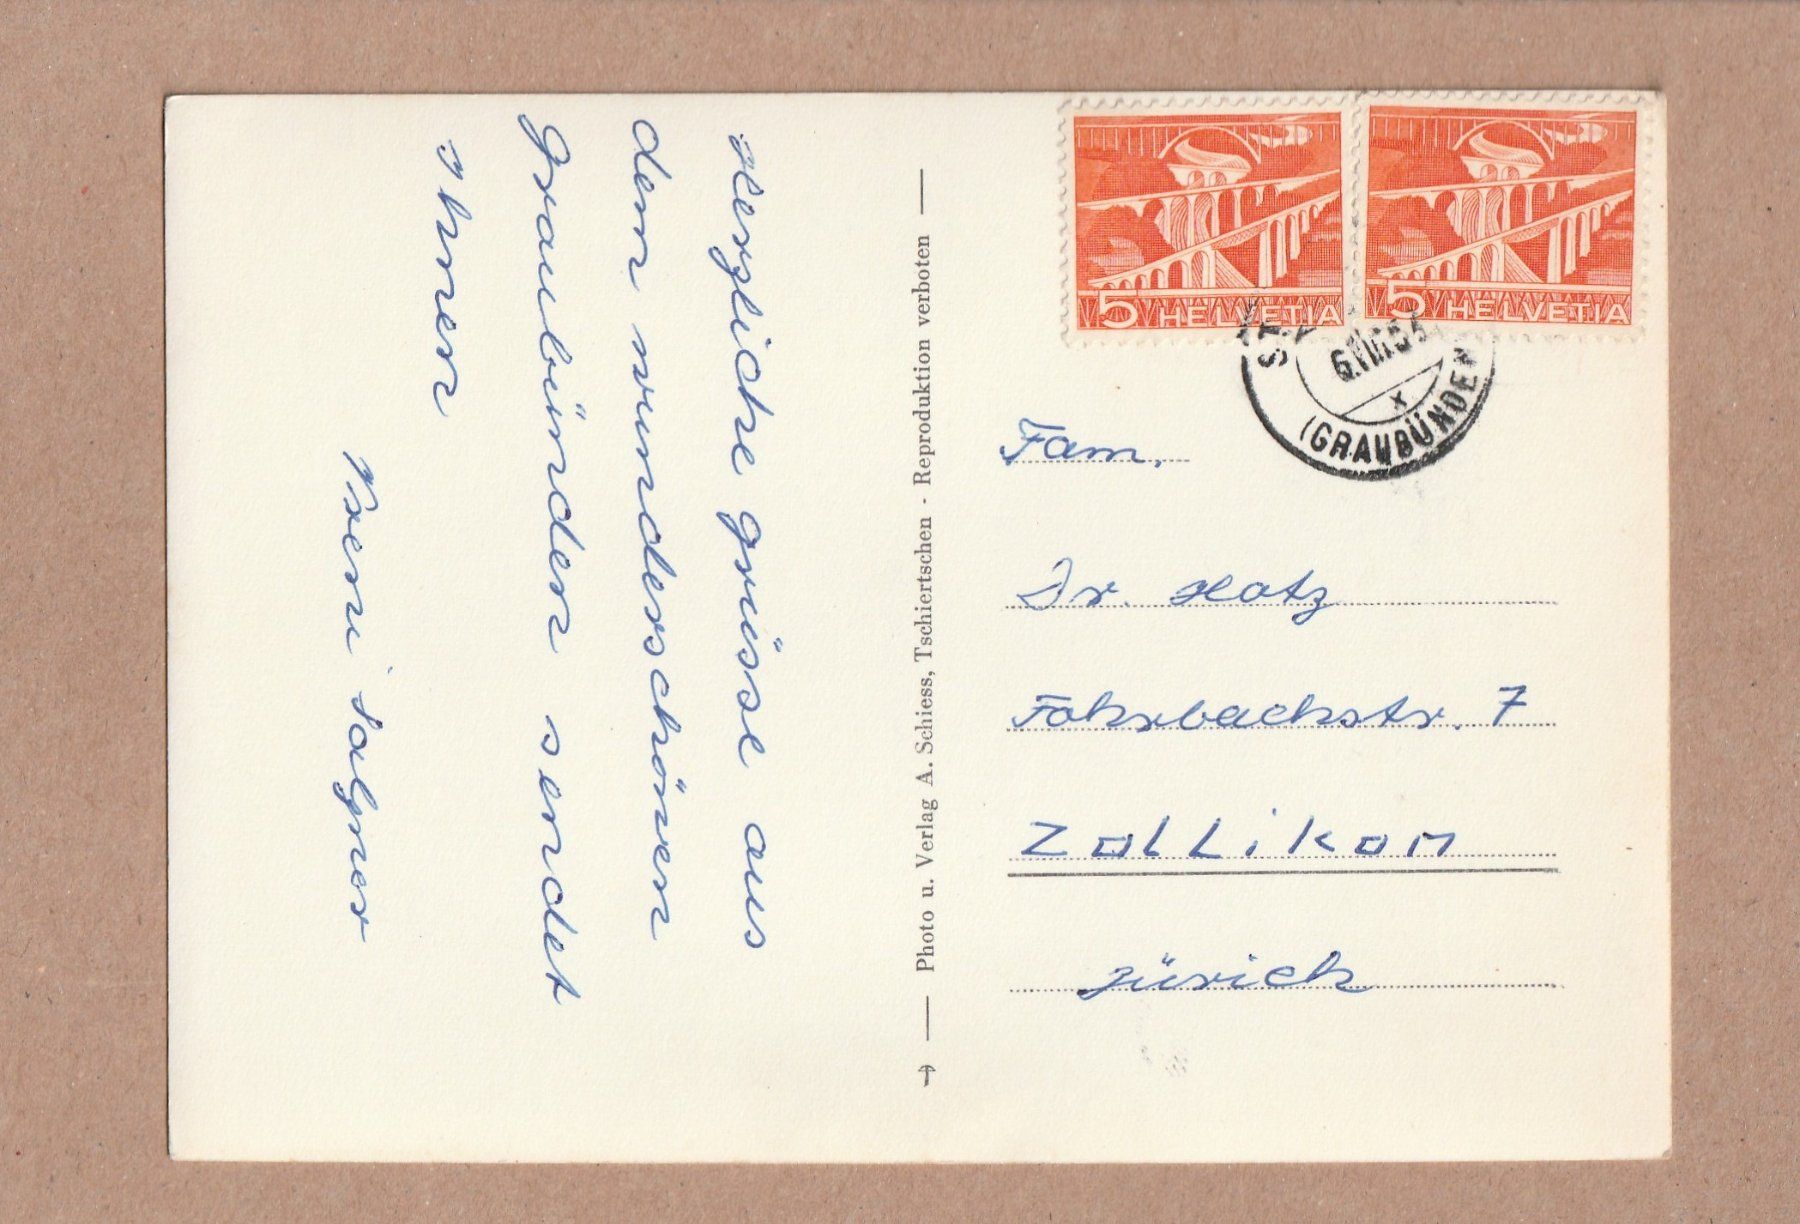 Herzliche Grüsse aus
dem wunderschönen
Graubünden sendet
Ihnen
Vreni
Photo u. Verlag A. Schiess, Tschiertschen - Reproduktion verboten
5 HELVETIA
5 HELVETIA
(GRAUBÜNDEN
Fam.
Dr. Hotz
Fohrbachstr. 7
Zollikon
Zürich